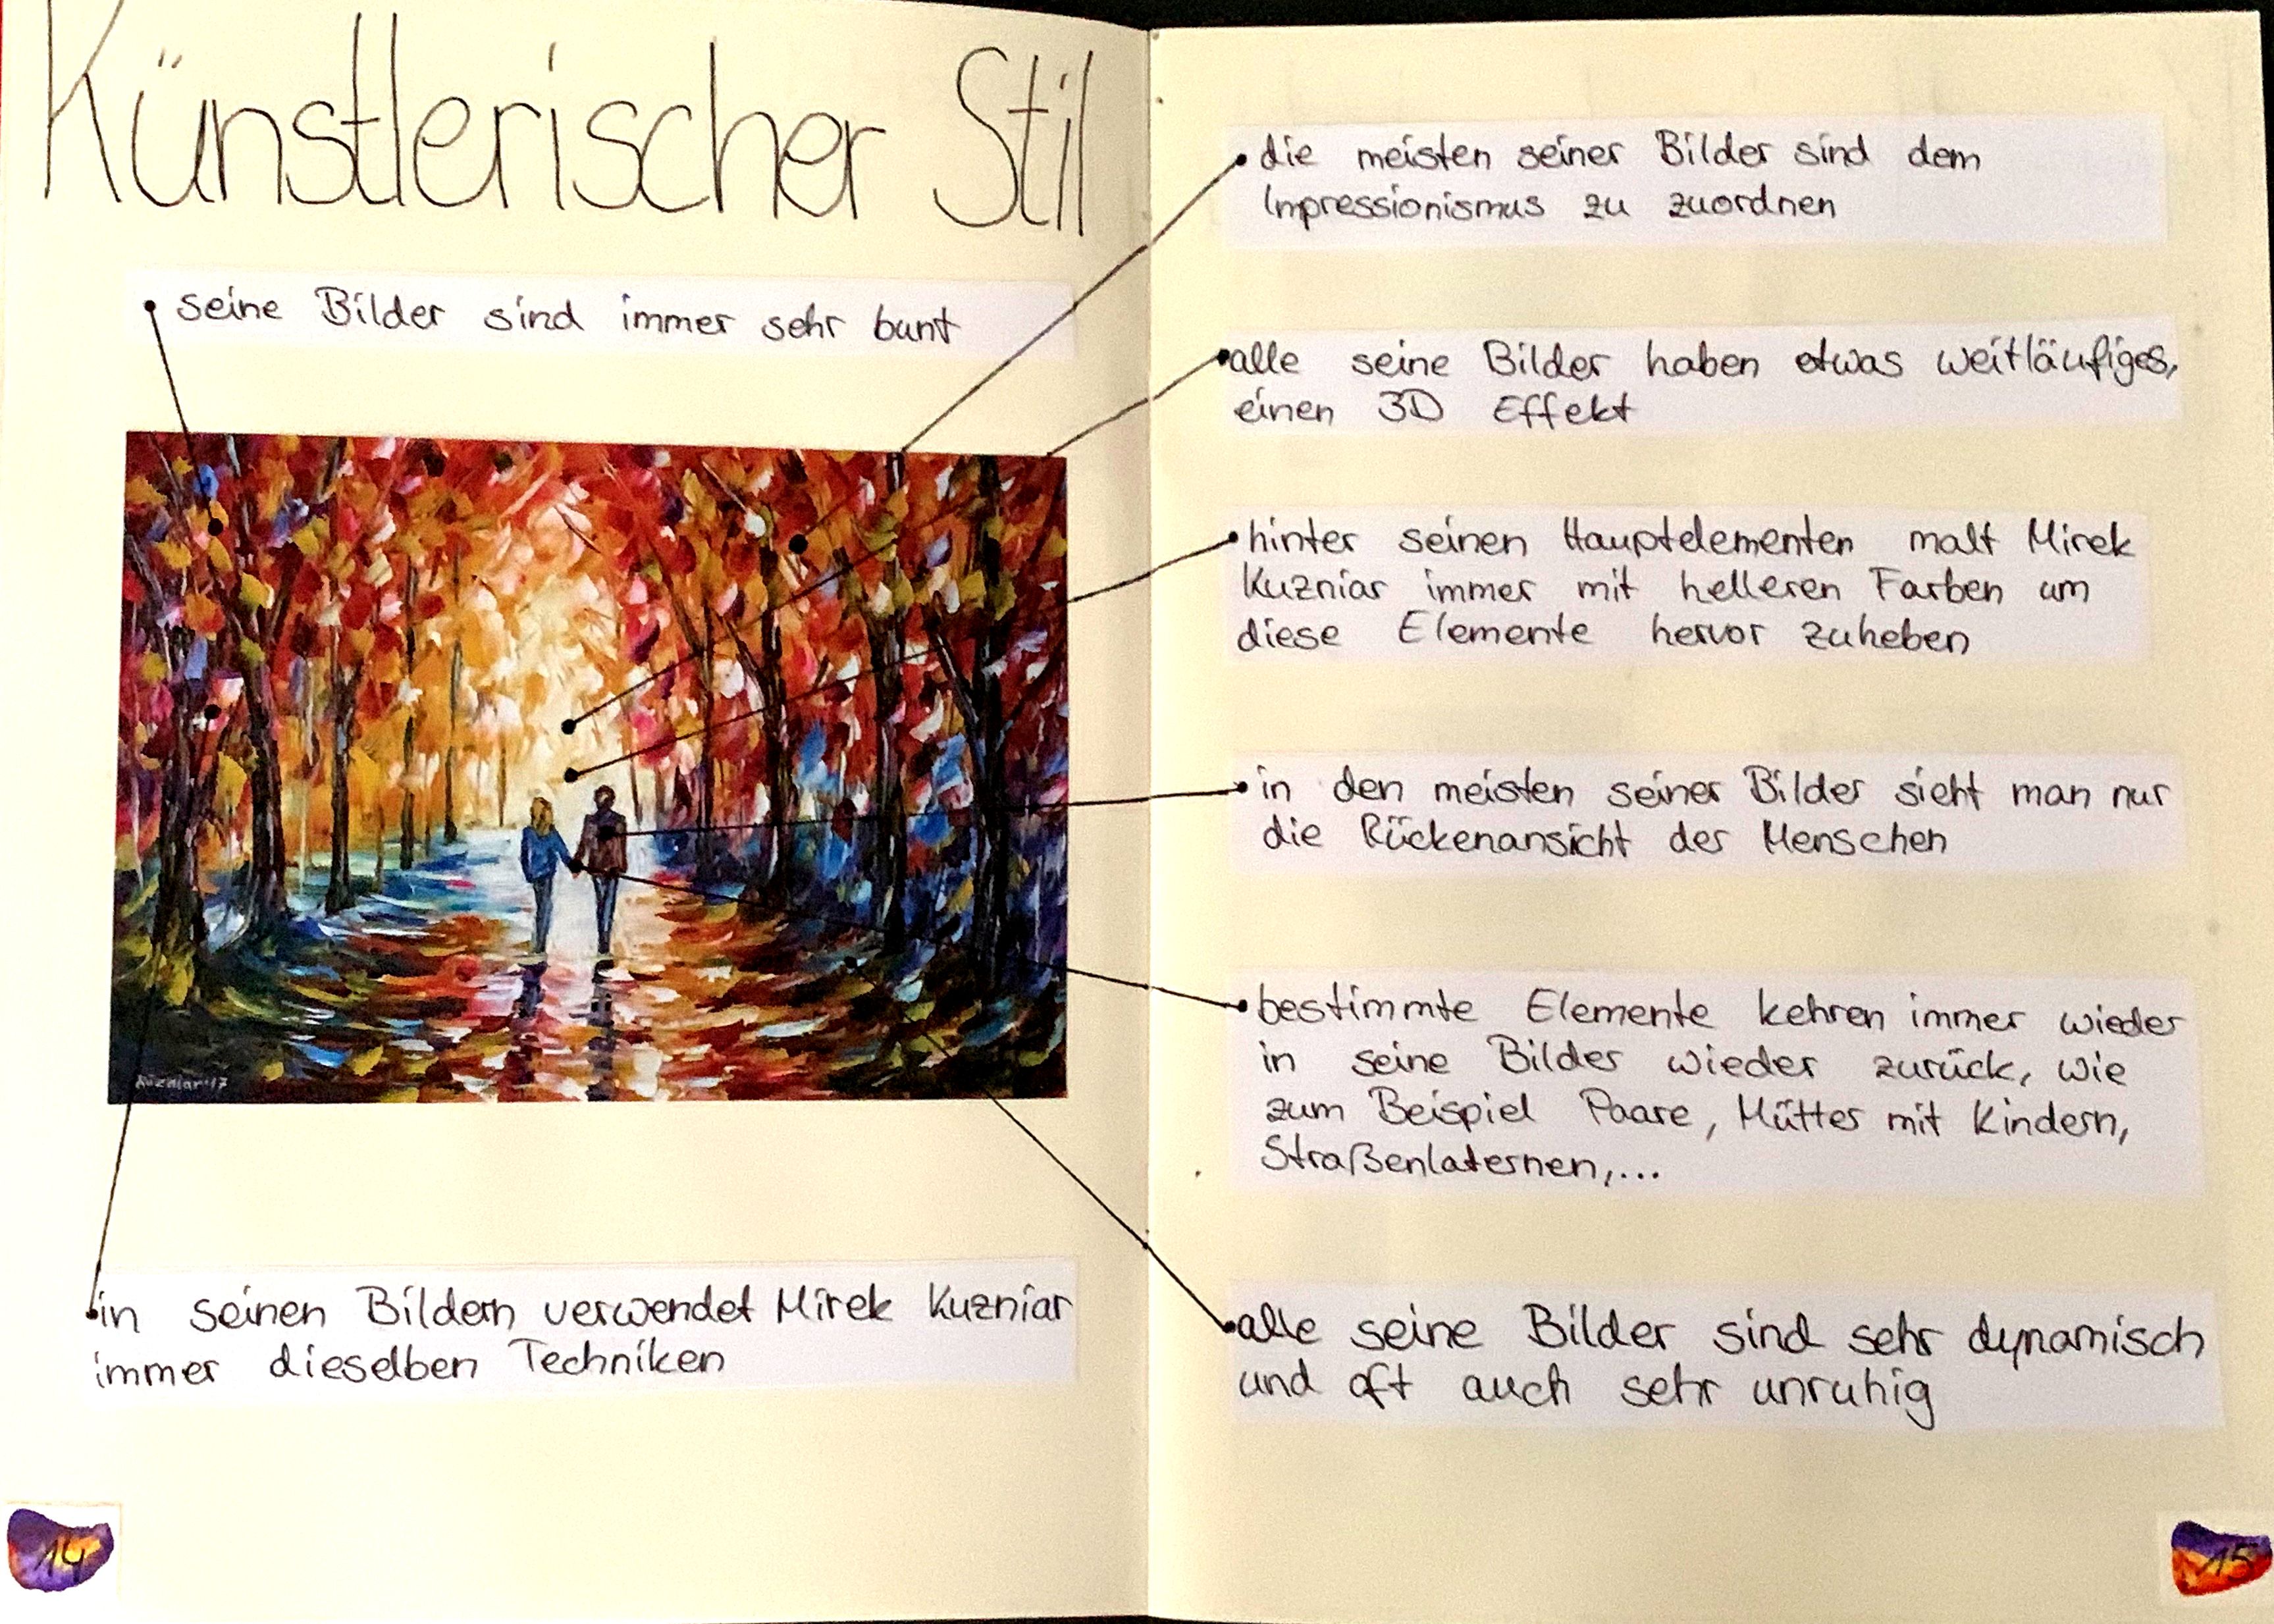 Künstlerischer Stil
seine Bilder sind immer sehr bunt
Kuzniar '17
in seinen Bildern verwendet Mirek Kuzniar
immer dieselben Techniken
14
die meisten seiner Bilder sind dem
Impressionismus zu zuordnen
alle seine Bilder haben etwas weitläufiges,
einen 3D Effekt
hinter seinen Hauptelementen malt Mirek
Kuzniar immer mit helleren Farben um
diese Elemente hervor zuheben
in den meisten seiner Bilder sieht man nur
die Rückenansicht der Menschen
bestimmte Elemente kehren immer wieder
in seine Bilder wieder zurück, wie
zum Beispiel Paare, Mütter mit Kindern,
Straßenlaternen,...
alle seine Bilder sind sehr dynamisch
und oft auch sehr unruhig
15